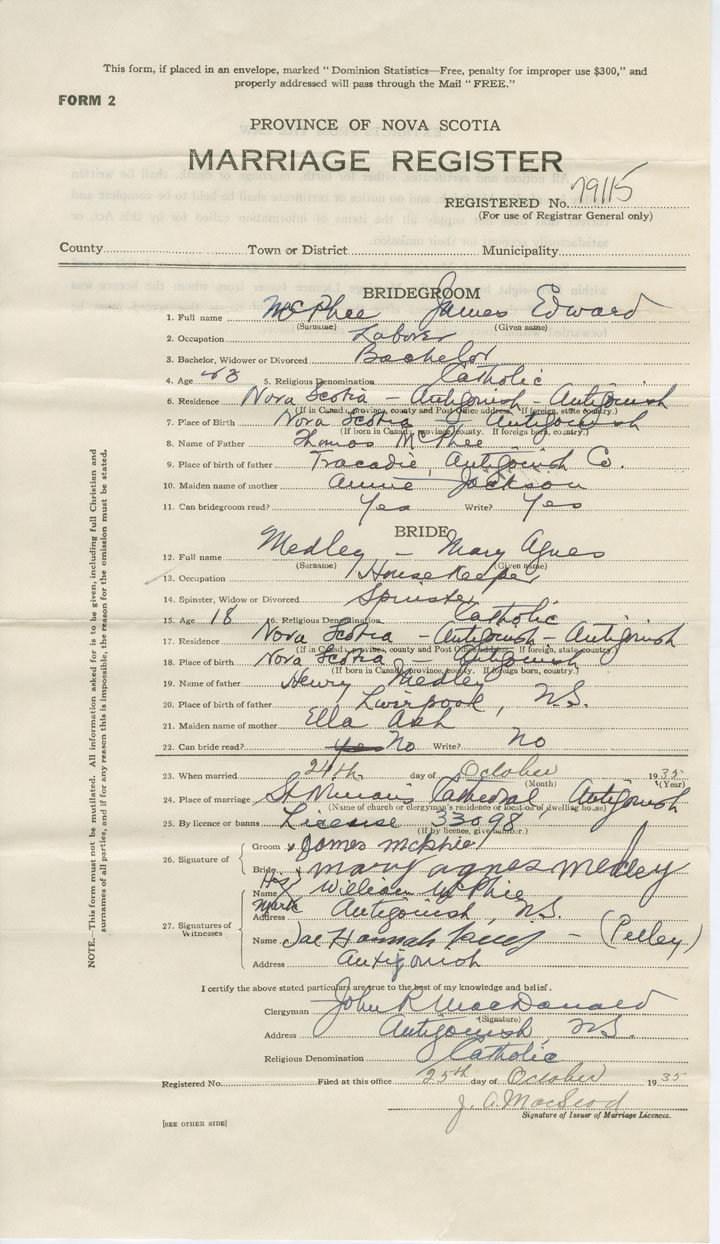 This form, if placed in an envelope, marked "Dominion Statistics—Free, penalty for improper use $300," and
properly addressed will pass through the Mail "FREE."
FORM 2
PROVINCE OF NOVA SCOTIA
MARRIAGE REGISTER
REGISTERED No. 79115
(For use of Registrar General only)
County Town or District Municipality
BRIDEGROOM
1. Full name McPhee James Edward
(Surname) (Given name)
2. Occupation Labor
3. Bachelor, Widower or Divorced Bachelor
4. Age 5. Religious Denomination Catholic
6. Residence Nova Scotia - Antigonish - Antigonish
(If in Canada, province, county and Post Office address. If foreign, state country.)
7. Place of Birth Nova Scotia - Antigonish
(If born in Canada, province, county. If foreign born, country.)
8. Name of Father Thomas McPhee
9. Place of birth of father Tracadie, Antigonish Co.
10. Maiden name of mother Annie Jackson
11. Can bridegroom read? Yes Write? Yes
BRIDE
12. Full name Medley - Mary Agnes
(Surname) (Given name)
13. Occupation Housekeeper
14. Spinster, Widow or Divorced Spinster
15. Age 18 16. Religious Denomination Catholic
17. Residence Nova Scotia - Antigonish - Antigonish
(If in Canada, province, county and Post Office address. If foreign, state country.)
18. Place of birth Nova Scotia - Antigonish
(If born in Canada, province, county. If foreign born, country.)
19. Name of father Henry Medley
20. Place of birth of father Liverpool, N.S.
21. Maiden name of mother Ella Ash
22. Can bride read? Yes No Write? No
23. When married 24th day of October 1935
(Month) (Year)
24. Place of marriage St Ninian's Cathedral, Antigonish
(Name of church or clergyman's residence or loc. of dwelling house)
25. By licence or banns License 33098
(If by licence, give number.)
26. Signature of
Groom James mcphie
Bride mary agnes medley
His
Name William McPhie
mark
Address Antigonish, N.S.
27. Signatures of
Witnesses
Name Hannah - (Pelley)
Address Antigonish
I certify the above stated particulars are true to the best of my knowledge and belief.
Clergyman John R MacDonald
(Signature)
Address Antigonish, N.S.
Religious Denomination Catholic
Registered No. Filed at this office 25th day of October 1935
J. A. MacLeod
Signature of Issuer of Marriage Licences.
[SEE OTHER SIDE]
NOTE.—This form must not be mutilated. All information asked for is to be given, including full Christian and
surnames of all parties, and if for any reason this is impossible, the reason for the omission must be stated.